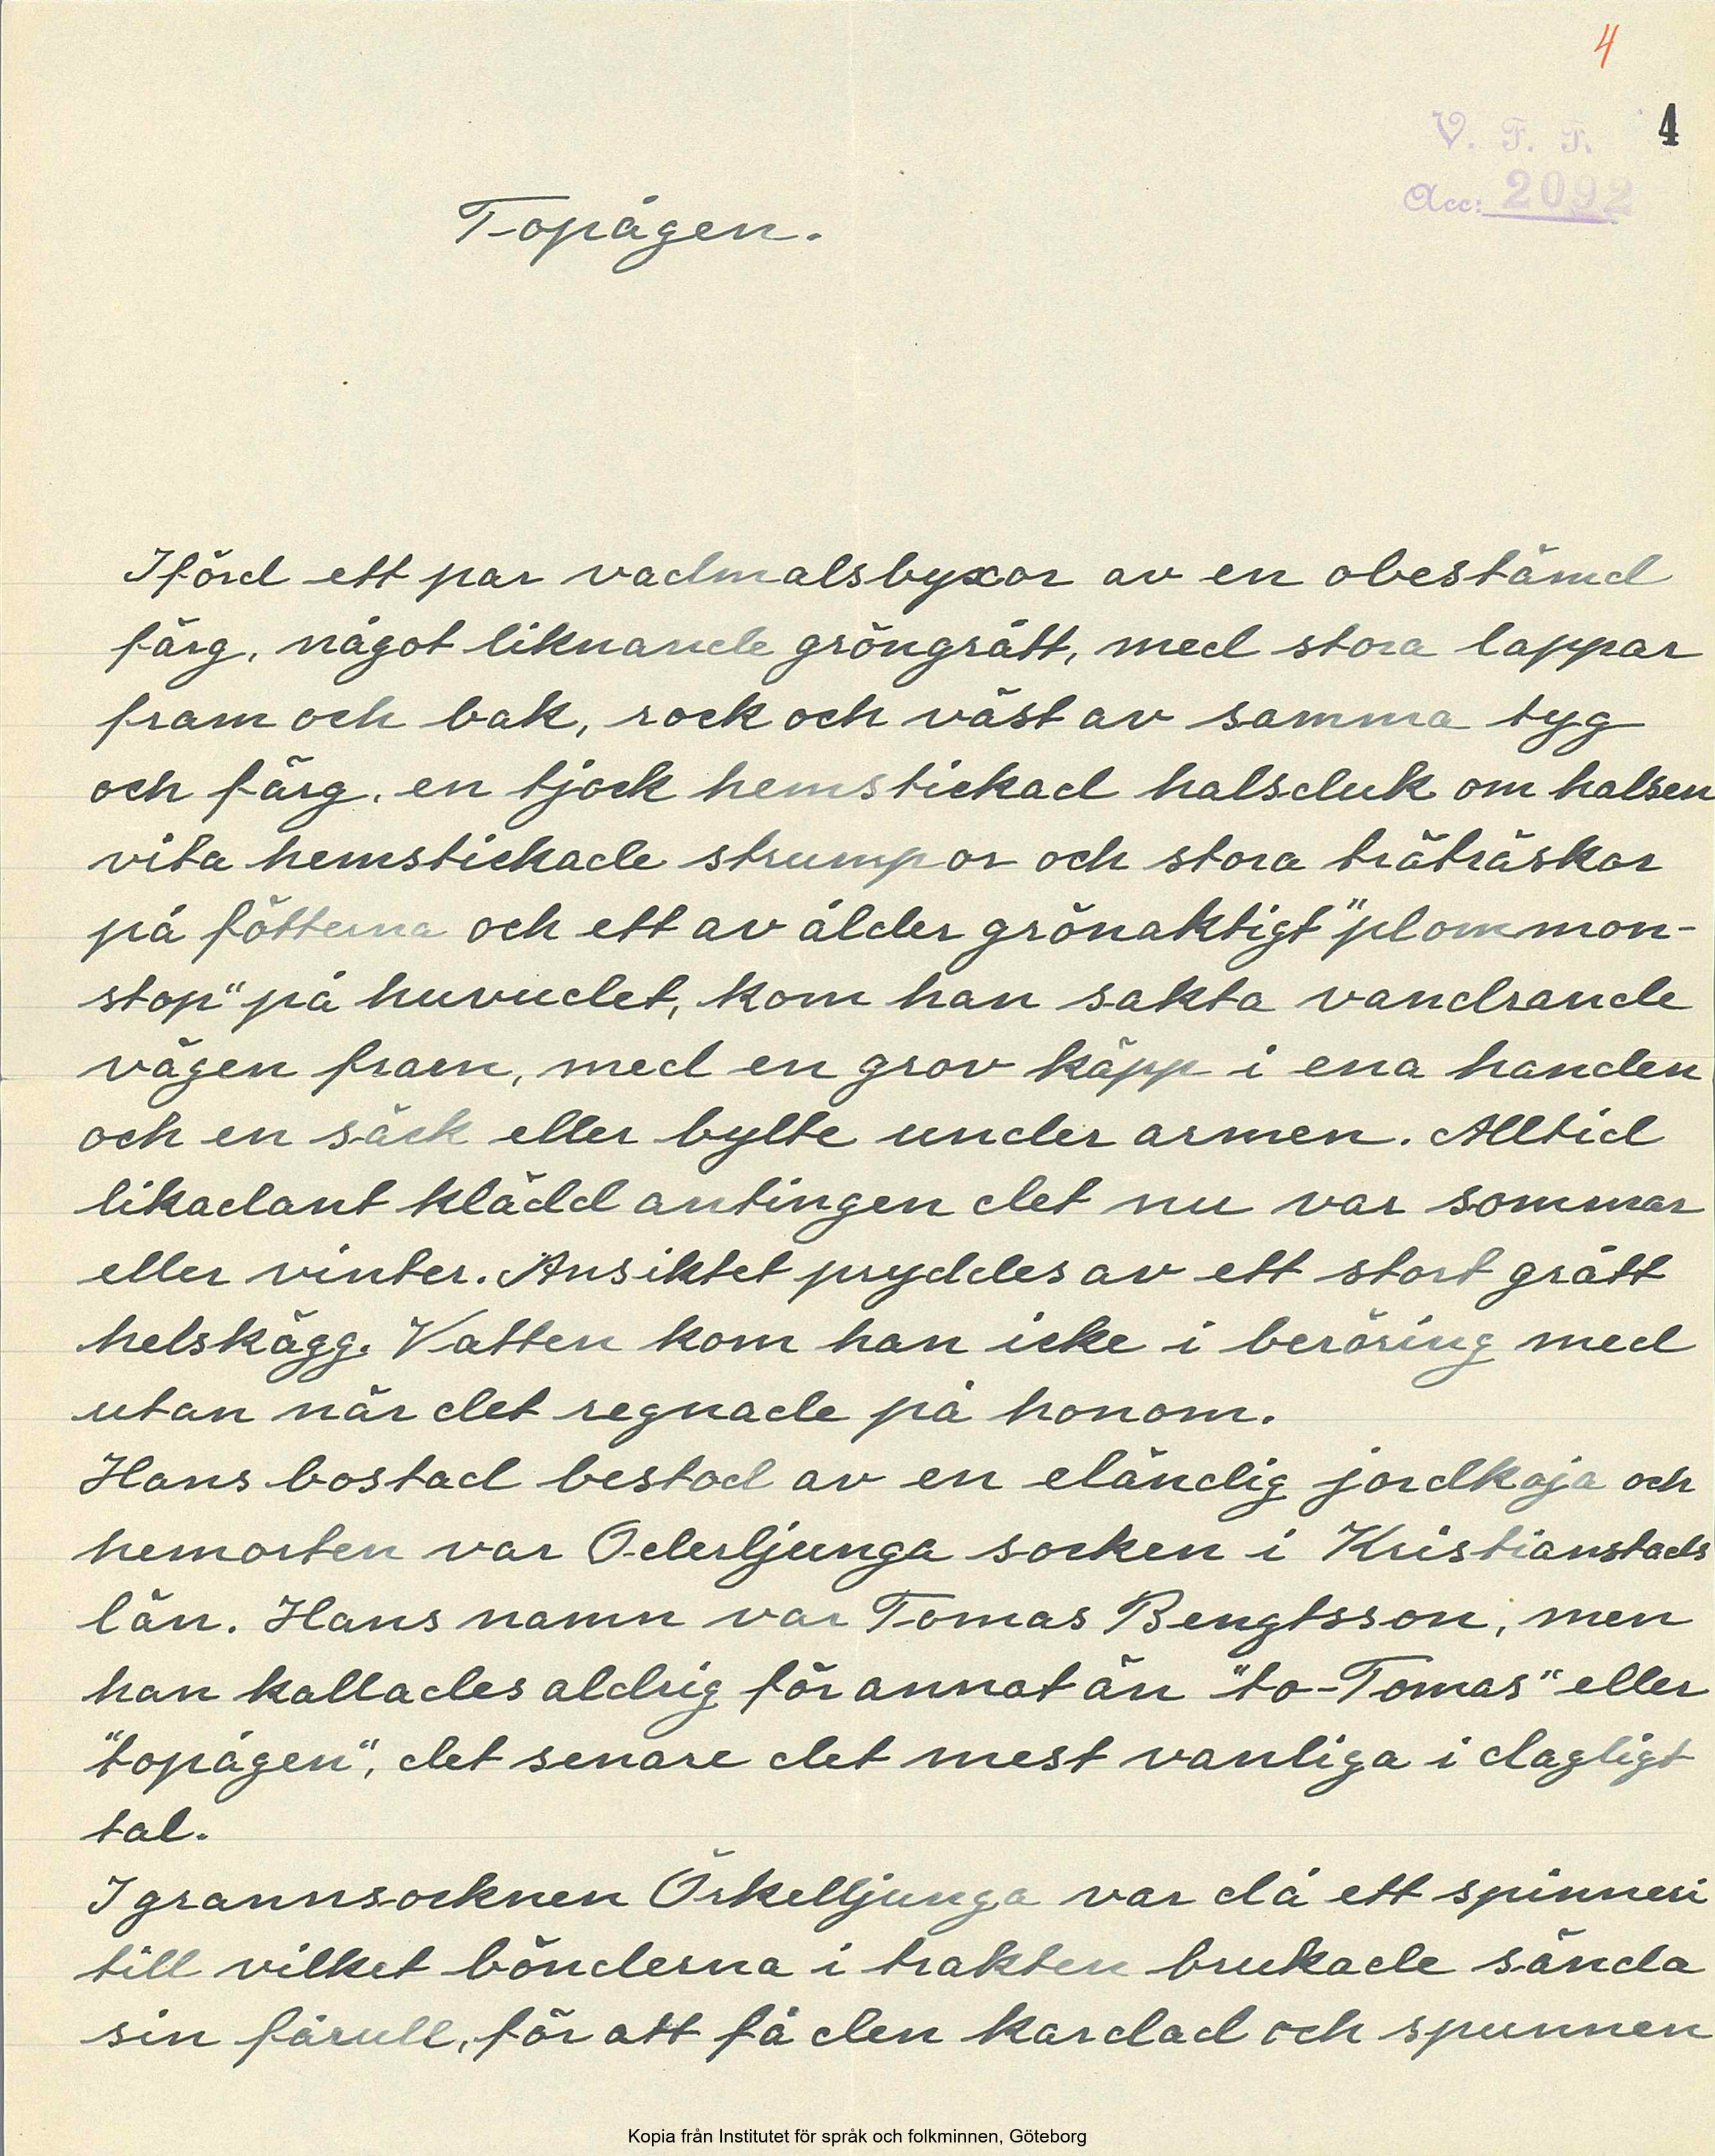 4
4
V. F. T.
Acc: 2092
Topågen.
Iförd ett par vadmalsbyxor av en obestämd
färg, något liknande gröngrått, med stora lappar
fram och bak, rock och väst av samma tyg
och färg, en tjock hemstickad halsduk om halsen
vita hemstickade strumpor och stora träträskor
på fötterna och ett av ålder grönaktigt "plommon-
stop" på huvudet, kom han sakta vandrande
vägen fram, med en grov käpp i ena handen
och en säck eller bylte under armen. Alltid
likadant klädd antingen det nu var sommar
eller vinter. Ansiktet pryddes av ett stort grått
helskägg. Vatten kom han icke i beröring med
utan när det regnade på honom.
Hans bostad bestod av en eländig jordkoja och
hemorten var Oderljunga socken i Kristianstads
län. Hans namn var Tomas Bengtsson, men
han kallades aldrig för annat än "to-Tomas" eller
"topågen", det senare det mest vanliga i dagligt
tal.
I grannsocknen Örkelljunga var då ett spinneri
till vilket bönderna i trakten brukade sända
sin fårull, för att få den kardad och spunnen
Kopia från Institutet för språk och folkminnen, Göteborg